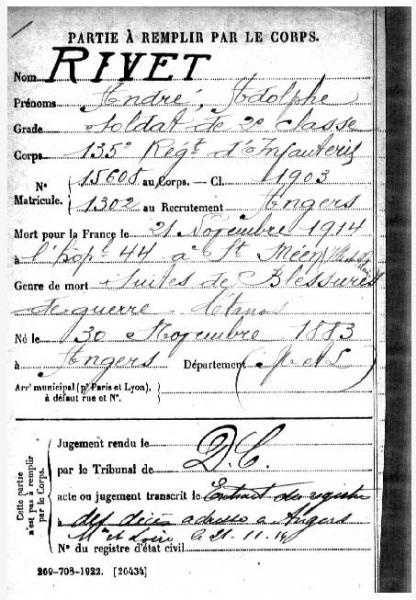 PARTIE À REMPLIR PAR LE CORPS.
Nom RIVET
Prénoms André, Adolphe
Grade Soldat de 2e Classe
Corps 135e Régt d'Infanterie
N° Matricule. 15608 au Corps. — Cl. 1903
1302 au Recrutement Angers
Mort pour la France le 21 Novembre 1914
à l'hôp. 44 à St Méen
Genre de mort Suites de Blessures
de guerre - Tétanos
Né le 30 Novembre 1883
à Angers Département (M et L)
Arrt municipal (pr Paris et Lyon), à défaut rue et N°.
Cette partie n'est pas à remplir par le Corps.
Jugement rendu le
par le Tribunal de D.C.
acte ou jugement transcrit le Extrait du registre
à des décès adressé à Angers
M et Loire le 21.11.14
N° du registre d'état civil
269-708-1922. [26434]